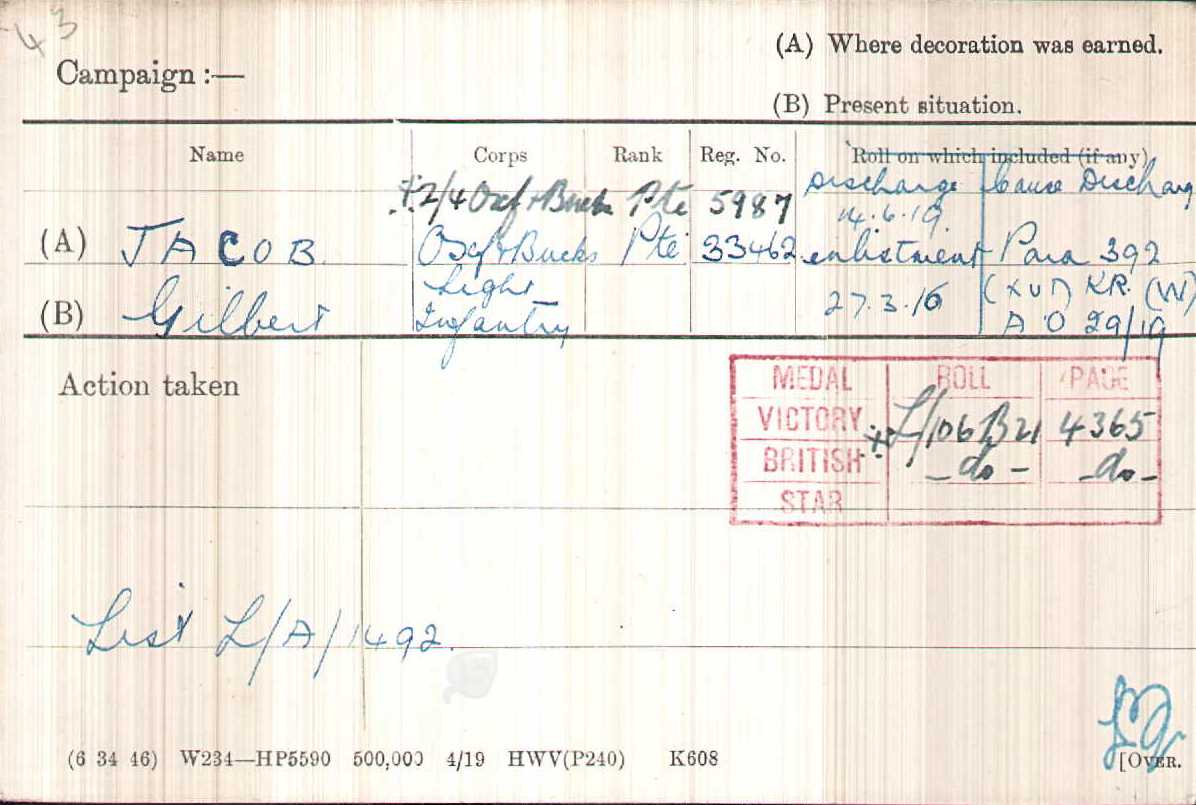 43
(A) Where decoration was earned.
Campaign :—
(B) Present situation.
Name Corps Rank Reg. No. Roll on which included (if any)
‡2/4 Oxf + Bucks Pte 5987 Discharge Cause Discharg
14.6.19.
(A) JACOB Oxf + Bucks Pte 33462 enlistment Para 392
(B) Gilbert Light 27.3.16 (XVI) KR. (W)
Infantry A O 29/19
Action taken
MEDAL ROLL PAGE
VICTORY ‡ L/106B21 4365
BRITISH - do - - do -
STAR
List L/A/1492.
(6 34 46) W234—HP5590 500,000 4/19 HWV(P240) K608 [OVER.